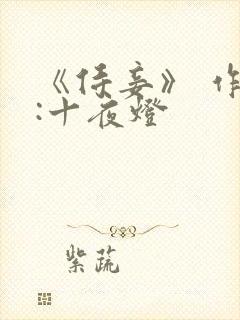 《侍妾》 作
:十夜燈
紫蔬